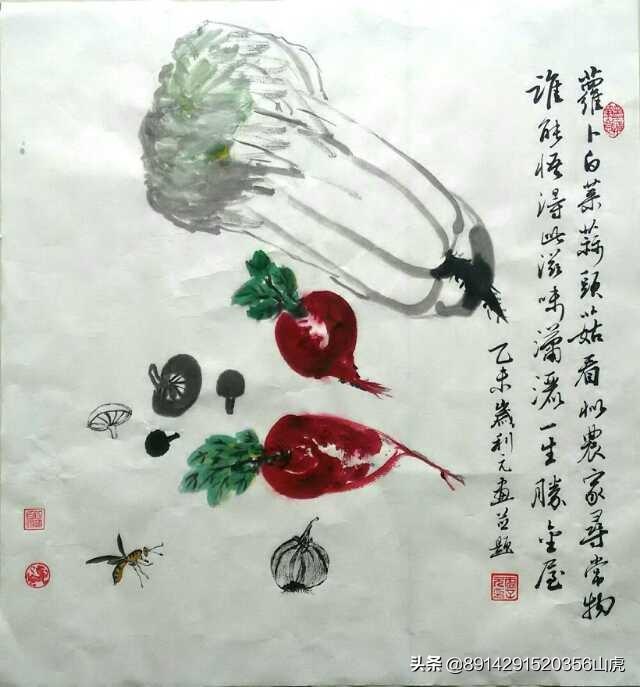 蘿卜白菜蒜頭菇看似農家尋常物
誰能悟得此滋味瀟灑一生勝金屋
乙未歲利元畫並題
头条 @8914291520356山虎